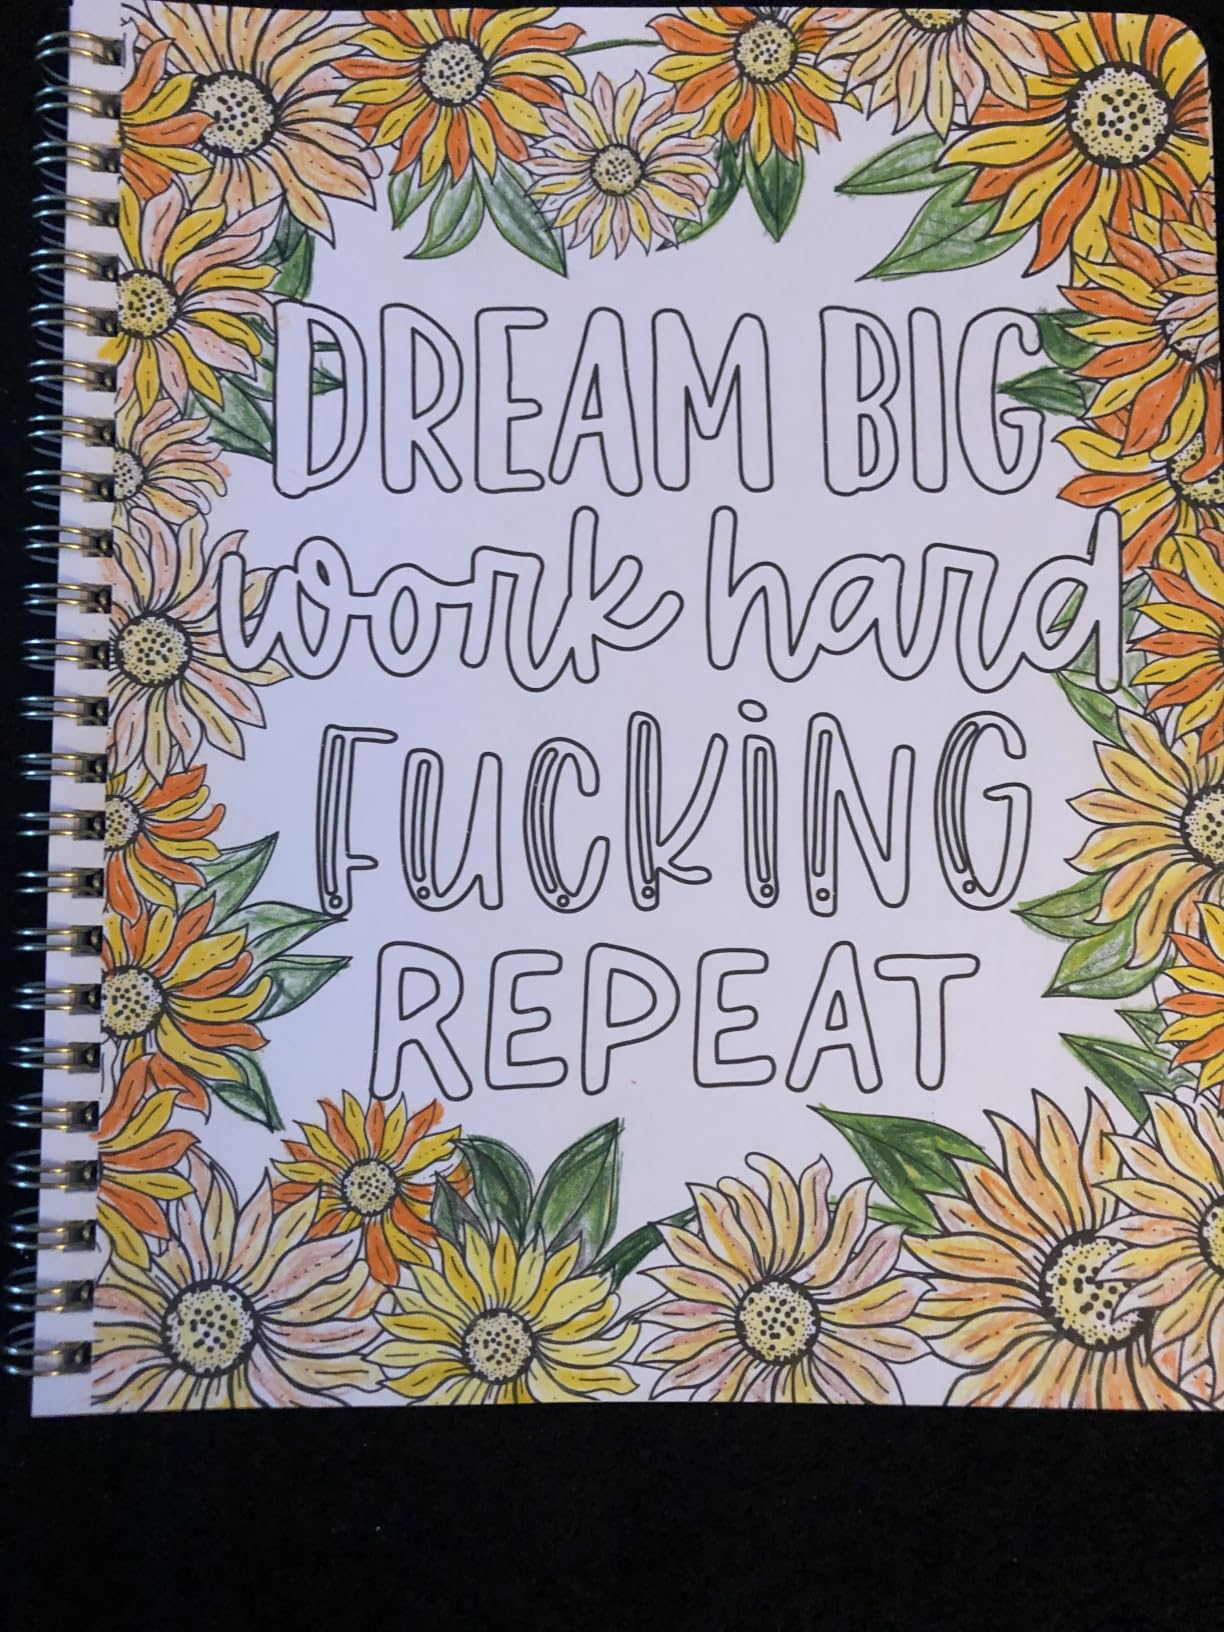 DREAM BIG
work hard
FUCKiNG
REPEAT